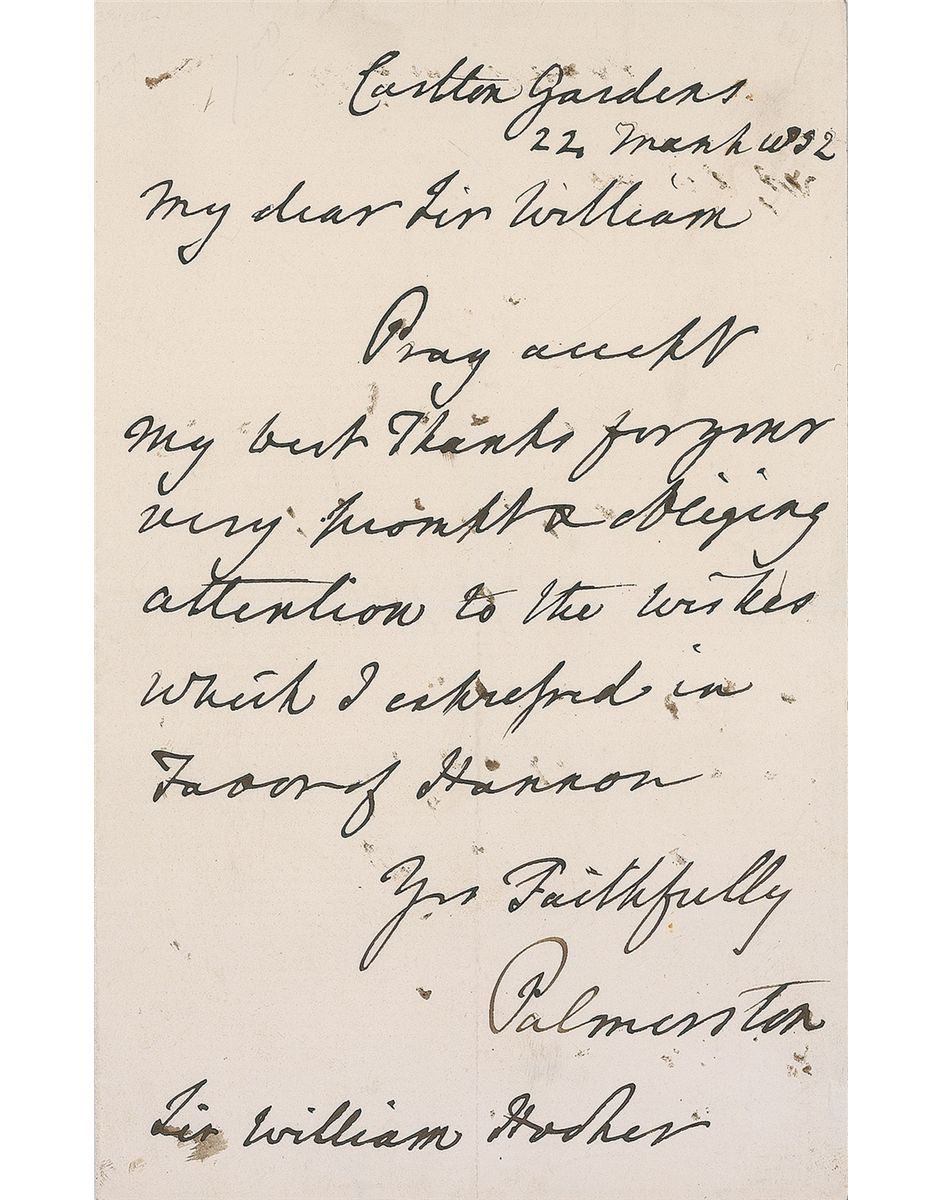 Carlton Gardens
22 March 1852
My dear Sir William
Pray accept
my best Thanks for your
very prompt & obliging
attention to the wishes
which I expressed in
Favor of Hannon
Yrs Faithfully
Palmerston
Sir William Hooker